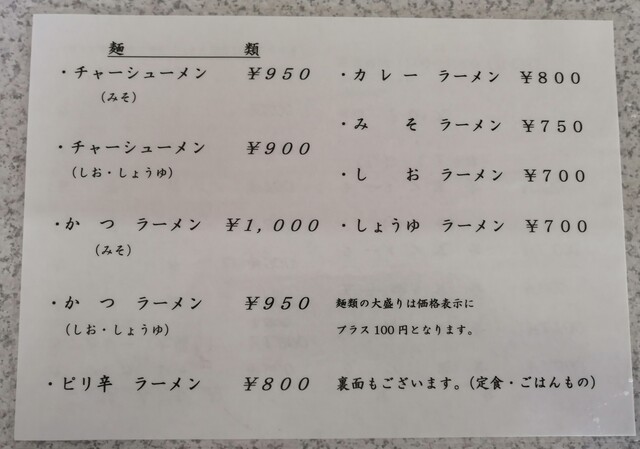 麺　　　　類
・チャーシューメン　￥９５０
（みそ）
・チャーシューメン　￥９００
（しお・しょうゆ）
・か　つ　ラーメン　￥１，０００
（みそ）
・か　つ　ラーメン　￥９５０
（しお・しょうゆ）
・ピリ辛　ラーメン　￥８００
・カ レ ー　ラーメン　￥８００
・み　　そ　ラーメン　￥７５０
・し　　お　ラーメン　￥７００
・しょうゆ　ラーメン　￥７００
麺類の大盛りは価格表示に
プラス100円となります。
裏面もございます。（定食・ごはんもの）